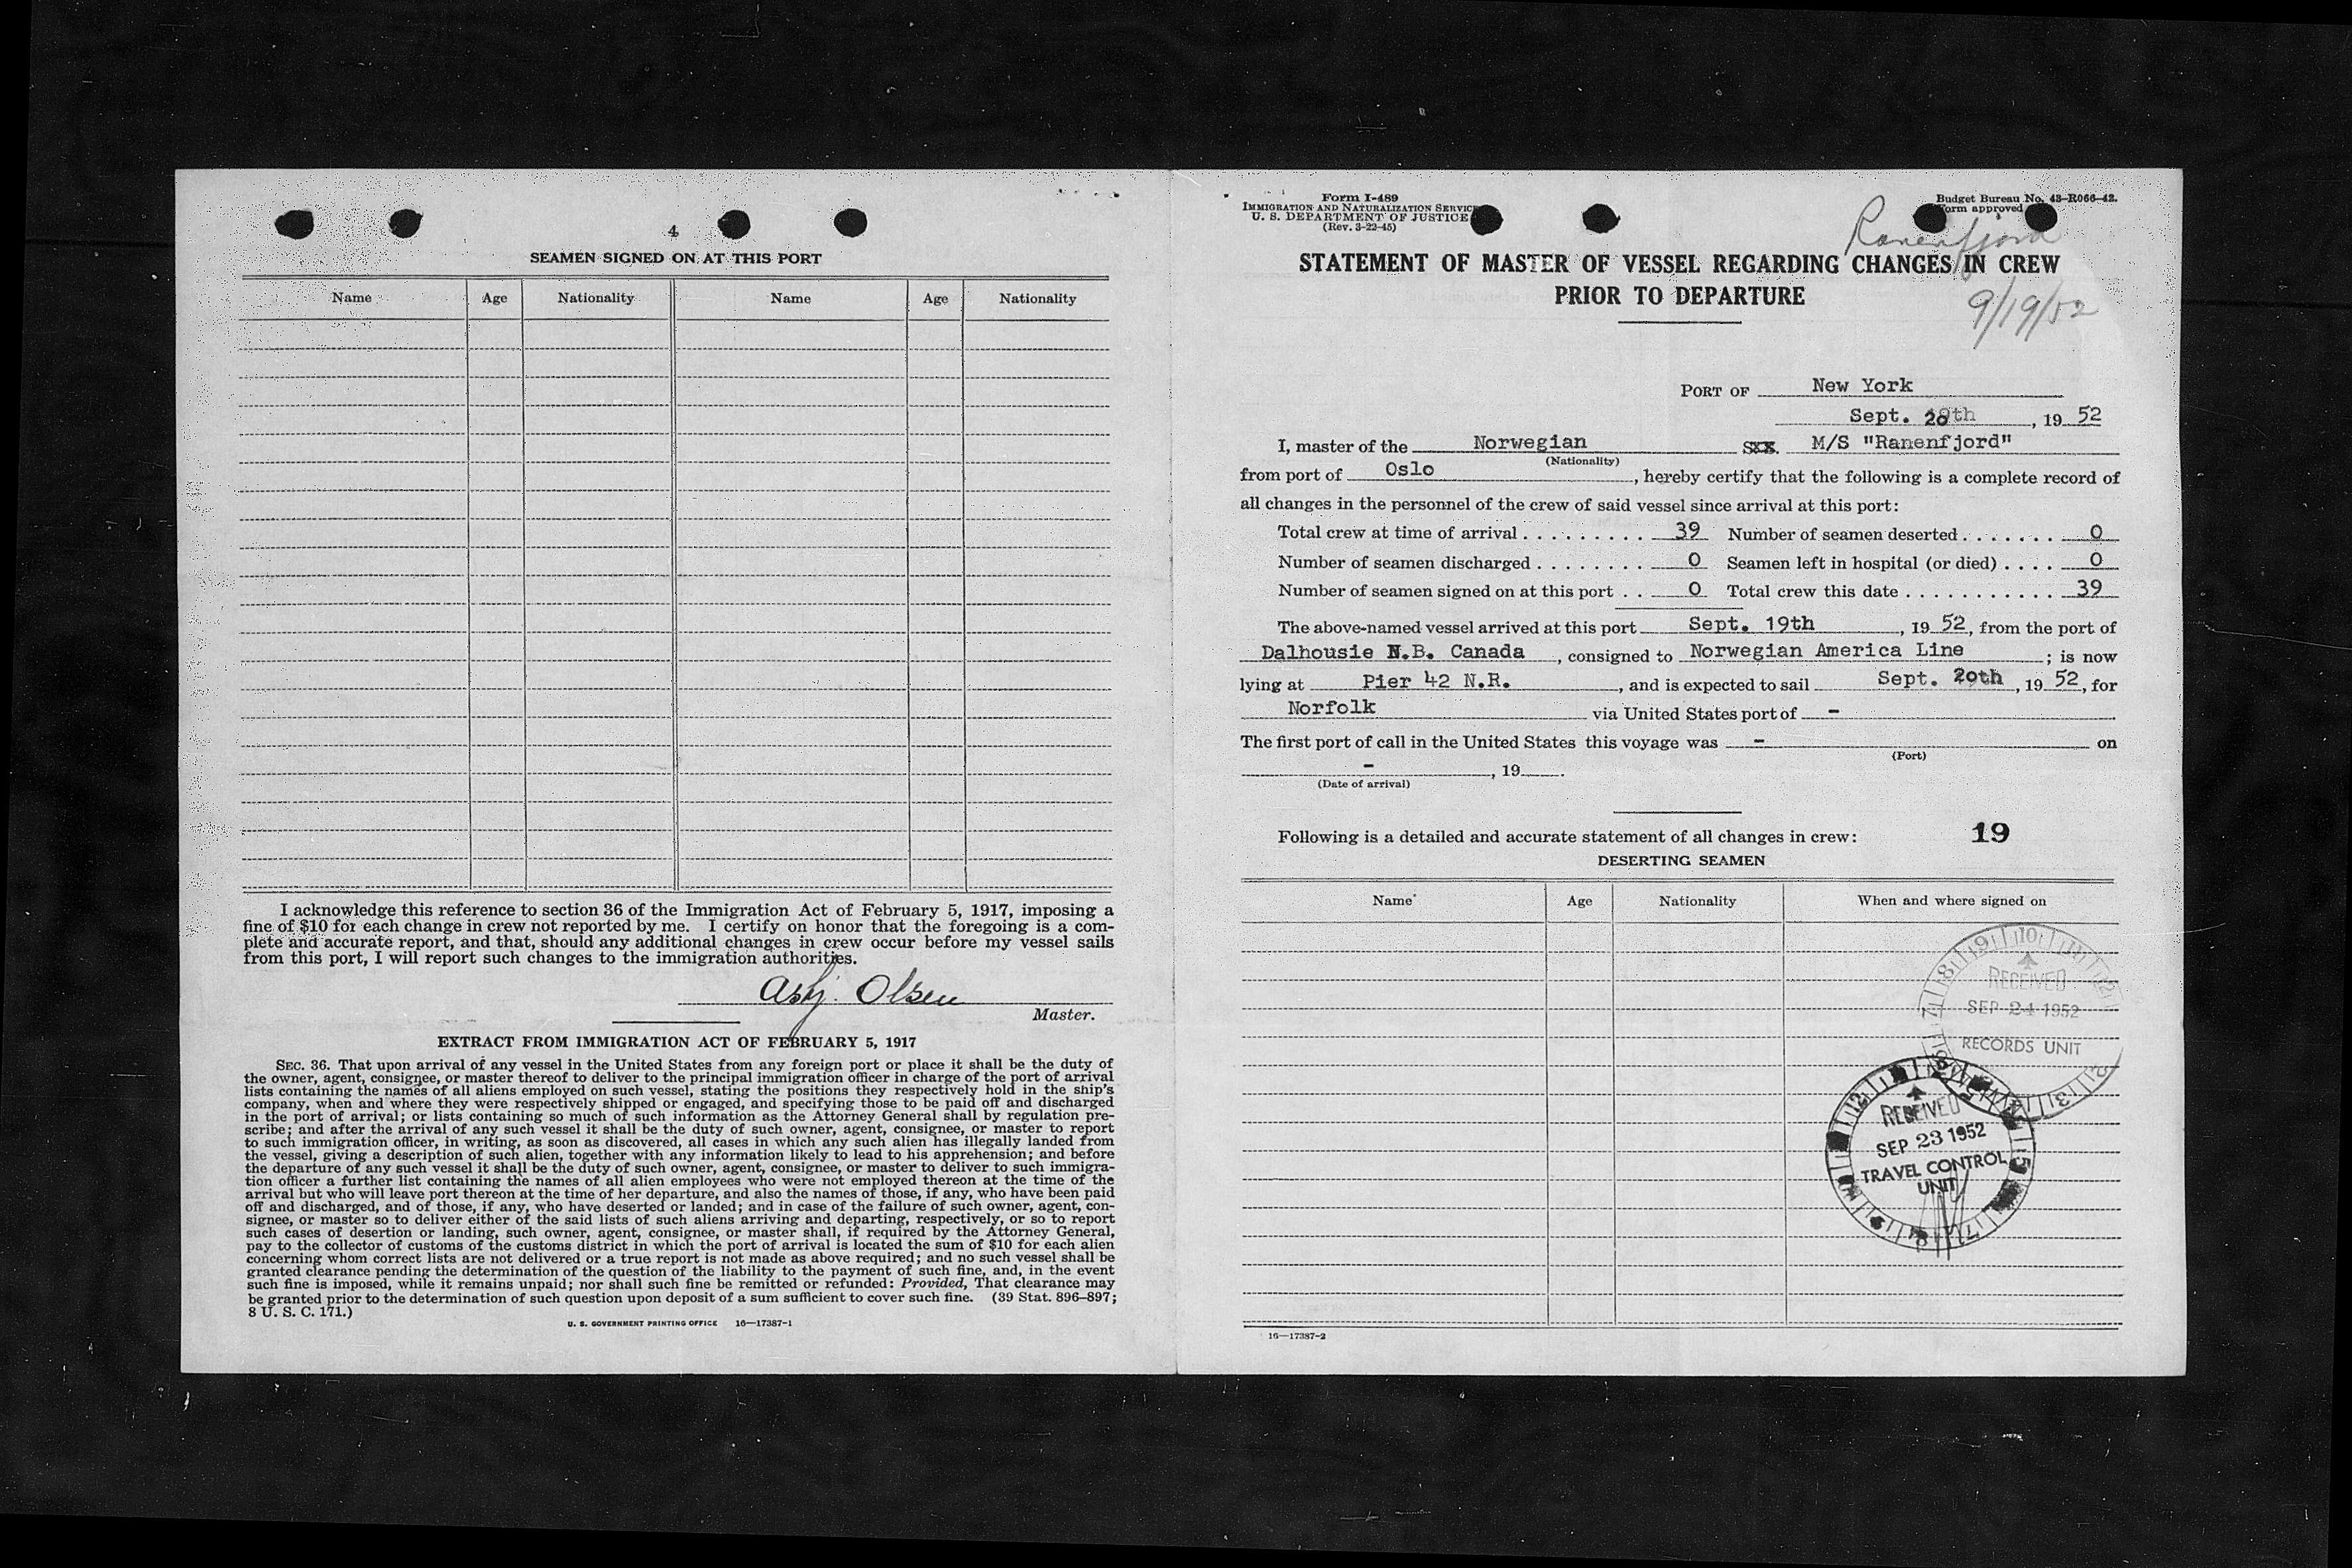 4
SEAMEN SIGNED ON AT THIS PORT
Name Age Nationality Name Age Nationality
I acknowledge this reference to section 36 of the Immigration Act of February 5, 1917, imposing a
fine of $10 for each change in crew not reported by me. I certify on honor that the foregoing is a com-
plete and accurate report, and that, should any additional changes in crew occur before my vessel sails
from this port, I will report such changes to the immigration authorities.
Asbj. Olsen
Master.
EXTRACT FROM IMMIGRATION ACT OF FEBRUARY 5, 1917
SEC. 36. That upon arrival of any vessel in the United States from any foreign port or place it shall be the duty of
the owner, agent, consignee, or master thereof to deliver to the principal immigration officer in charge of the port of arrival
lists containing the names of all aliens employed on such vessel, stating the positions they respectively hold in the ship's
company, when and where they were respectively shipped or engaged, and specifying those to be paid off and discharged
in the port of arrival; or lists containing so much of such information as the Attorney General shall by regulation pre-
scribe; and after the arrival of any such vessel it shall be the duty of such owner, agent, consignee, or master to report
to such immigration officer, in writing, as soon as discovered, all cases in which any such alien has illegally landed from
the vessel, giving a description of such alien, together with any information likely to lead to his apprehension; and before
the departure of any such vessel it shall be the duty of such owner, agent, consignee, or master to deliver to such immigra-
tion officer a further list containing the names of all alien employees who were not employed thereon at the time of the
arrival but who will leave port thereon at the time of her departure, and also the names of those, if any, who have been paid
off and discharged, and of those, if any, who have deserted or landed; and in case of the failure of such owner, agent, con-
signee, or master so to deliver either of the said lists of such aliens arriving and departing, respectively, or so to report
such cases of desertion or landing, such owner, agent, consignee, or master shall, if required by the Attorney General,
pay to the collector of customs of the customs district in which the port of arrival is located the sum of $10 for each alien
concerning whom correct lists are not delivered or a true report is not made as above required; and no such vessel shall be
granted clearance pending the determination of the question of the liability to the payment of such fine, and, in the event
such fine is imposed, while it remains unpaid; nor shall such fine be remitted or refunded: Provided, That clearance may
be granted prior to the determination of such question upon deposit of a sum sufficient to cover such fine. (39 Stat. 896–897;
8 U. S. C. 171.)
U. S. GOVERNMENT PRINTING OFFICE 16—17387-1
Form I-489
IMMIGRATION AND NATURALIZATION SERVICE
U. S. DEPARTMENT OF JUSTICE
(Rev. 3-22-45)
Budget Bureau No. 43-R066-42.
Form approved
Ranenfjord
STATEMENT OF MASTER OF VESSEL REGARDING CHANGES IN CREW
PRIOR TO DEPARTURE
9/19/52
PORT OF New York
Sept. 20th, 19 52
I, master of the Norwegian M/S "Ranenfjord"
(Nationality)
from port of Oslo, hereby certify that the following is a complete record of
all changes in the personnel of the crew of said vessel since arrival at this port:
Total crew at time of arrival . . . . . . . . . 39 Number of seamen deserted . . . . . . . 0
Number of seamen discharged . . . . . . . . 0 Seamen left in hospital (or died) . . . . 0
Number of seamen signed on at this port . . 0 Total crew this date . . . . . . . . . . . 39
The above-named vessel arrived at this port Sept. 19th, 19 52, from the port of
Dalhousie N.B. Canada, consigned to Norwegian America Line; is now
lying at Pier 42 N.R., and is expected to sail Sept. 20th, 19 52, for
Norfolk via United States port of -
The first port of call in the United States this voyage was - on
(Port)
-, 19 .
(Date of arrival)
Following is a detailed and accurate statement of all changes in crew: 19
DESERTING SEAMEN
Name Age Nationality When and where signed on
RECEIVED
SEP 24 1952
RECORDS UNIT
RECEIVED
SEP 23 1952
TRAVEL CONTROL
UNIT
16—17387-2